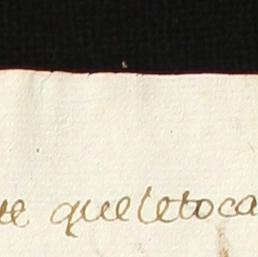 que le toca